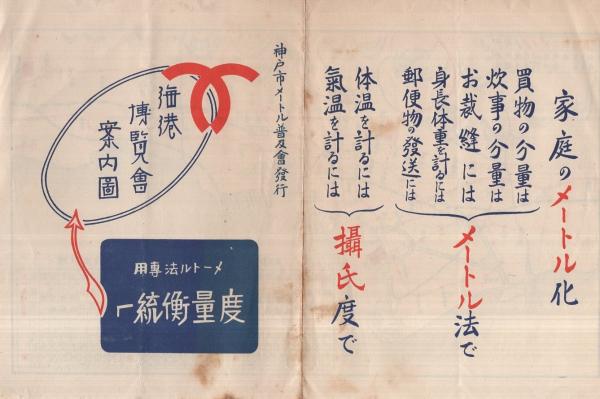 家庭のメートル化
買物の分量は
炊事の分量は
お裁縫には
身長体重を計るには
郵便物の發送には
メートル法で
体温を計るには
氣温を計るには
攝氏度で
神戸市メートル普及會發行
海港
博覧會
案内圖
メートル法専用
度量衡統一